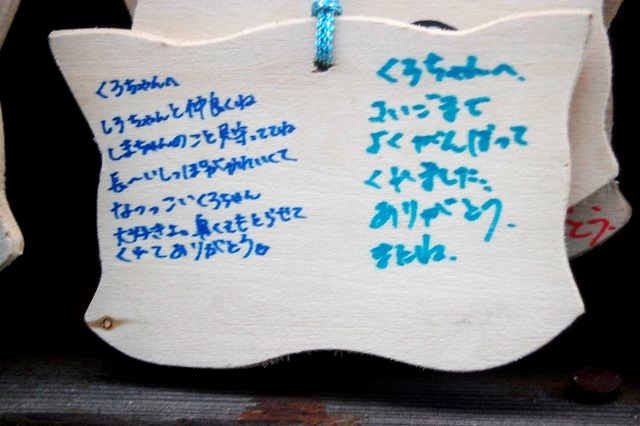 くろちゃんへ
しろちゃんと仲良くね
しまちゃんのこと見守っててね
長〜いしっぽがかわいくて
なつっこいくろちゃん
大好きよ。臭くてもとらせて
くれてありがとう
くろちゃんへ、
さいごまで
よくがんばって
くれました。
ありがとう。
またね。
とう